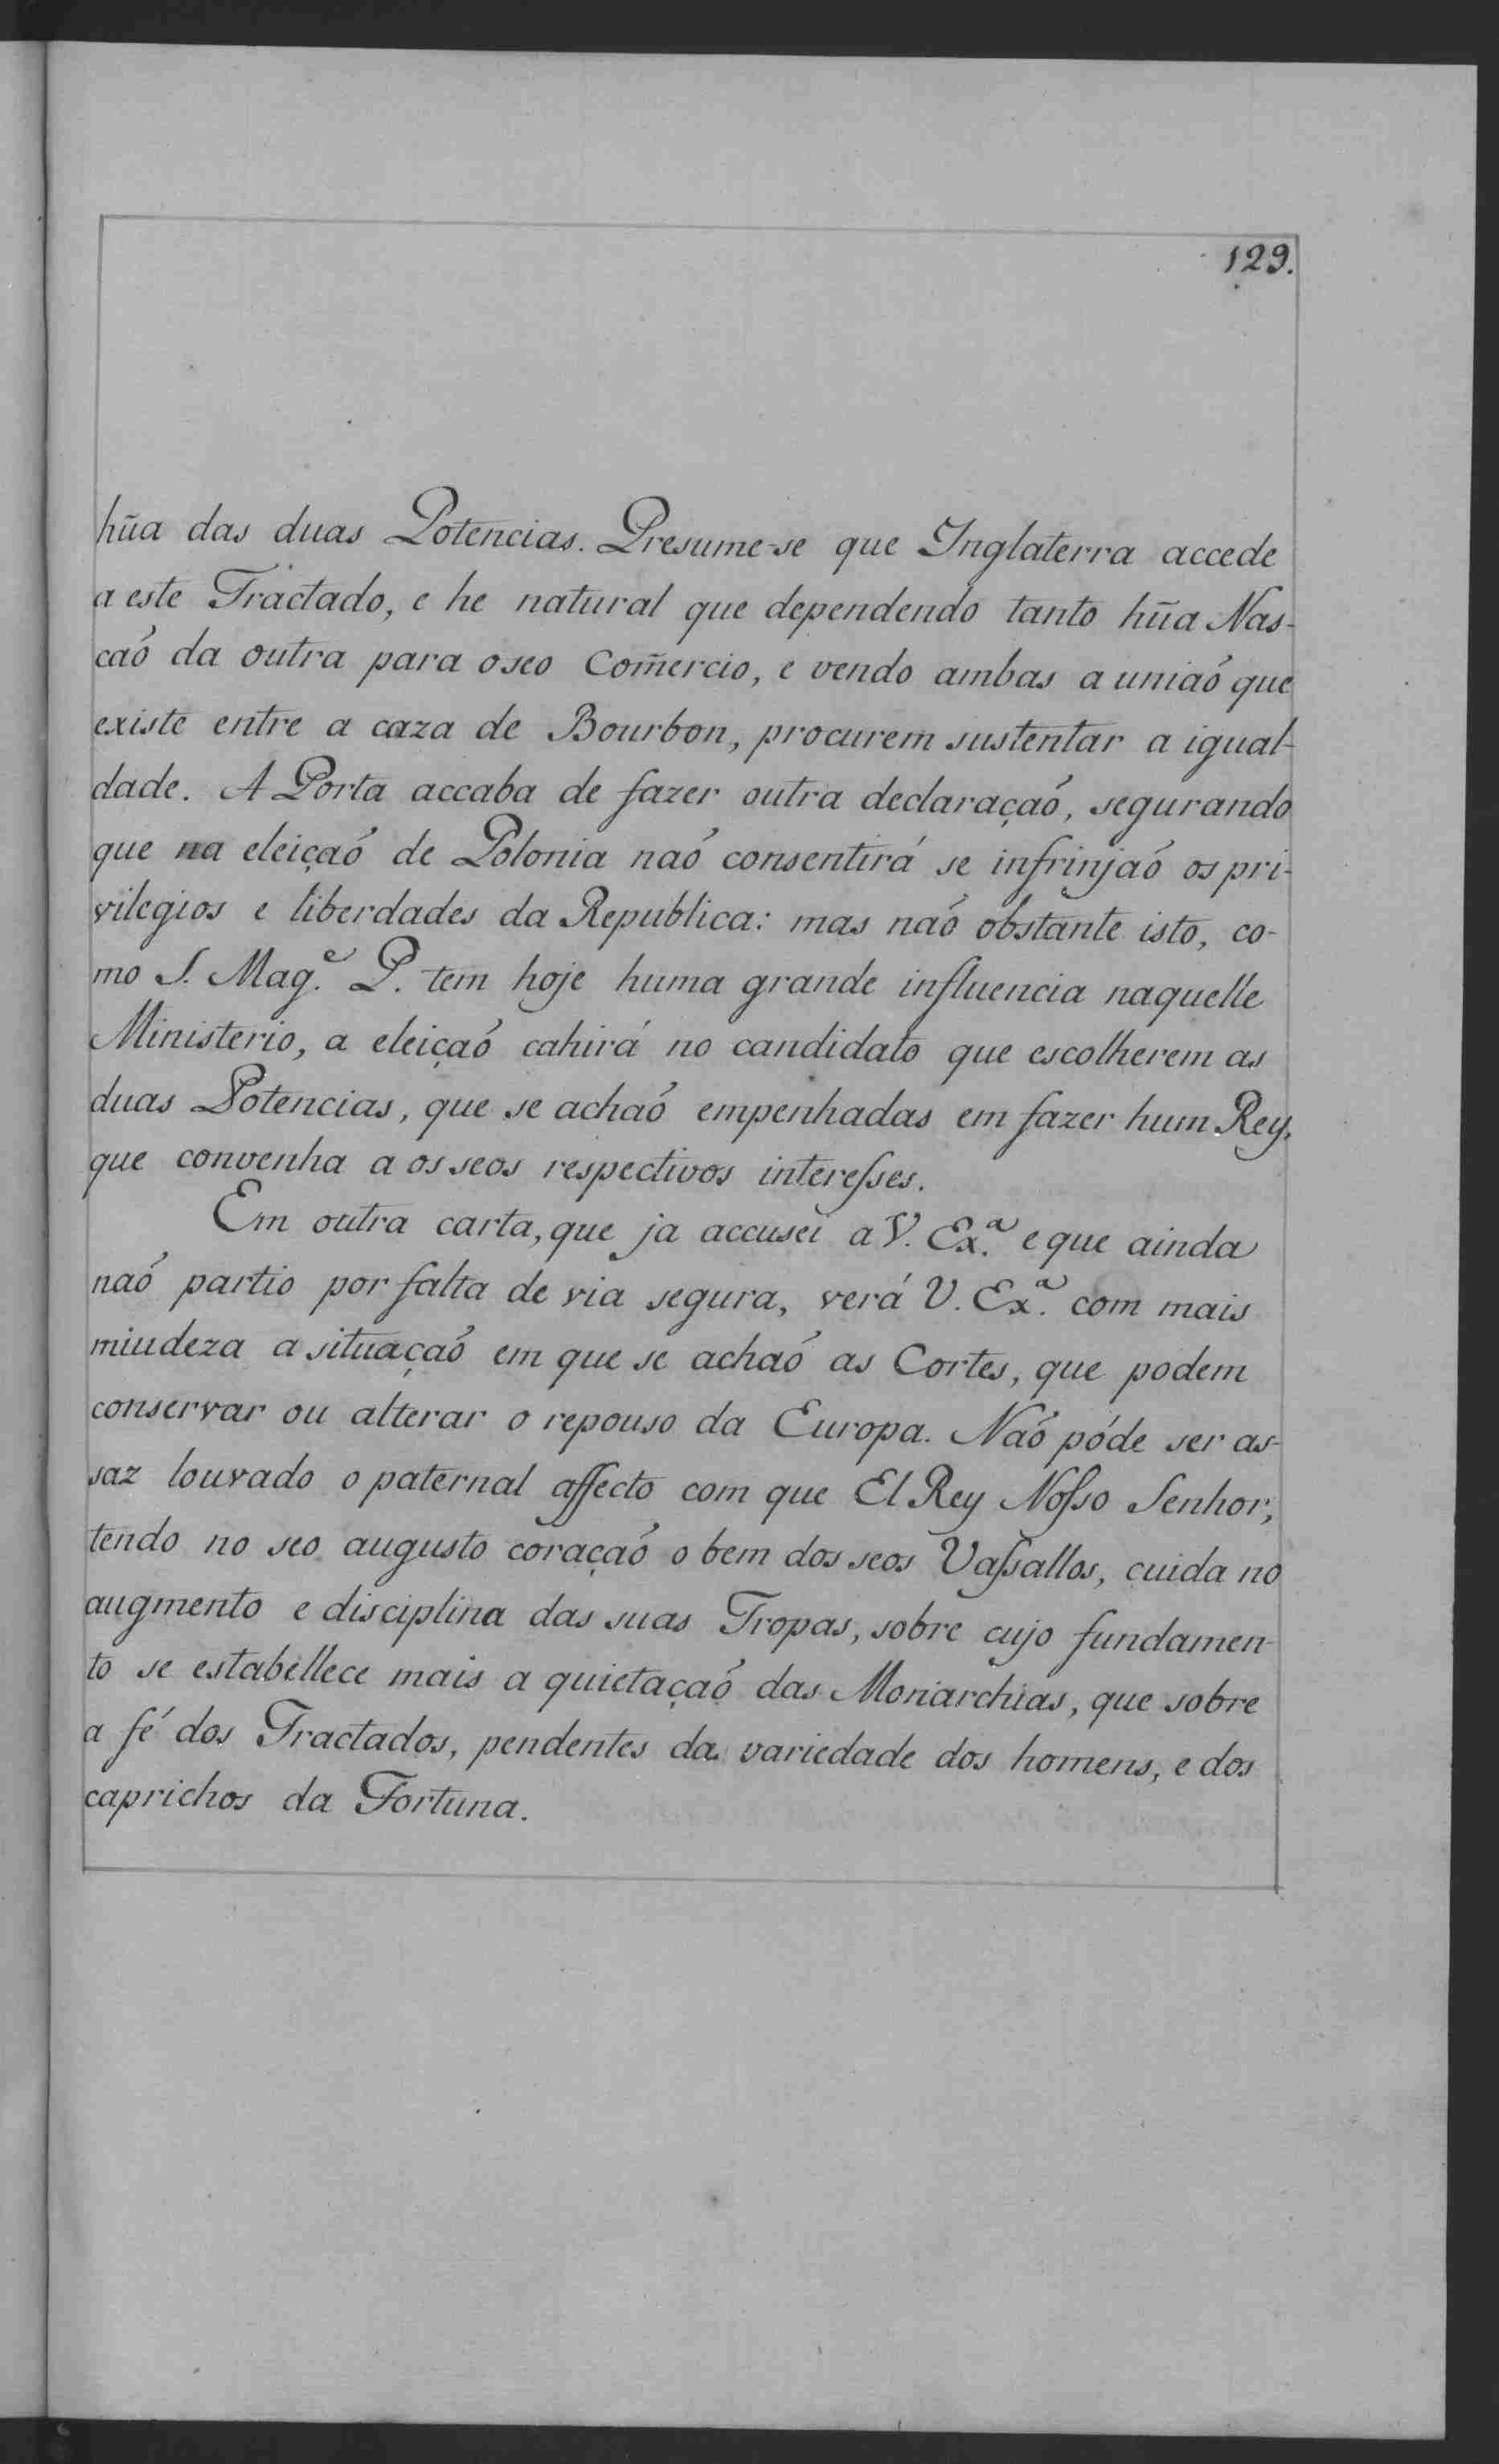 129.
hũa das duas Potencias. Presume-se que Inglaterra accede
a este Tractado, e he natural que dependendo tanto hũa Nas-
caó da outra para o seo Com̃ercio, e vendo ambas a uniaó que
existe entre a caza de Bourbon, procurem sustentar a igual-
dade. A Porta accaba de fazer outra declaraçaó, segurando
que na eleiçaó de Polonia naó consentirá se infrinjaó os pri-
vilegios e liberdades da Republica: mas naó obstante isto, co-
mo S. Mag.ᵉ P. tem hoje huma grande influencia naquelle
Ministerio, a eleiçaó cahirá no candidato que escolherem as
duas Potencias, que se achaó empenhadas em fazer hum Rey,
que convenha a os seos respectivos intereſses.
Em outra carta, que ja accusei a V. Ex.ᵃ e que ainda
naó partio por falta de via segura, verá V. Ex.ᵃ com mais
miudeza a situaçaó em que se achaó as Cortes, que podem
conservar ou alterar o repouso da Europa. Naó póde ser as-
saz louvado o paternal affecto com que El Rey Noſso Senhor,
tendo no seo augusto coraçaó o bem dos seos Vaſsallos, cuida no
augmento e disciplina das suas Tropas, sobre cujo fundamen-
to se estabellece mais a quietaçaó das Monarchias, que sobre
a fé dos Tractados, pendentes da variedade dos homens, e dos
caprichos da Fortuna.